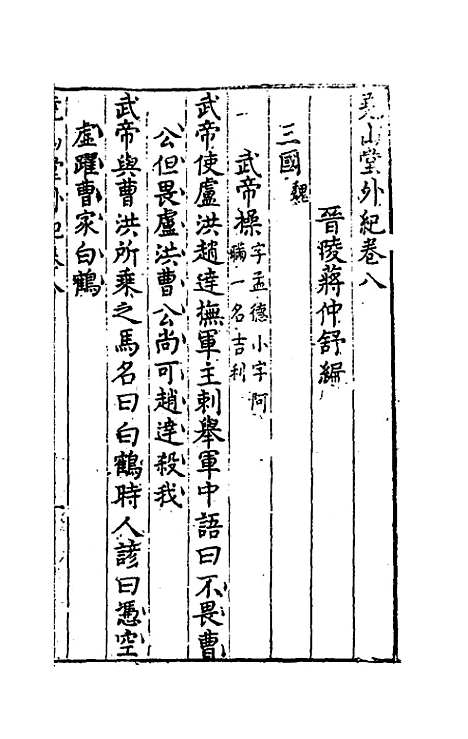 堯山堂外紀卷八
晉陵蔣仲舒編
三國 魏
武帝操 字孟德小字阿
瞞一名吉利
武帝使盧洪趙達撫軍主刺舉軍中語曰不畏曹
公但畏盧洪曹公尚可趙達殺我
武帝與曹洪所乘之馬名曰白鶴時人諺曰憑空
虛躍曹家白鶴